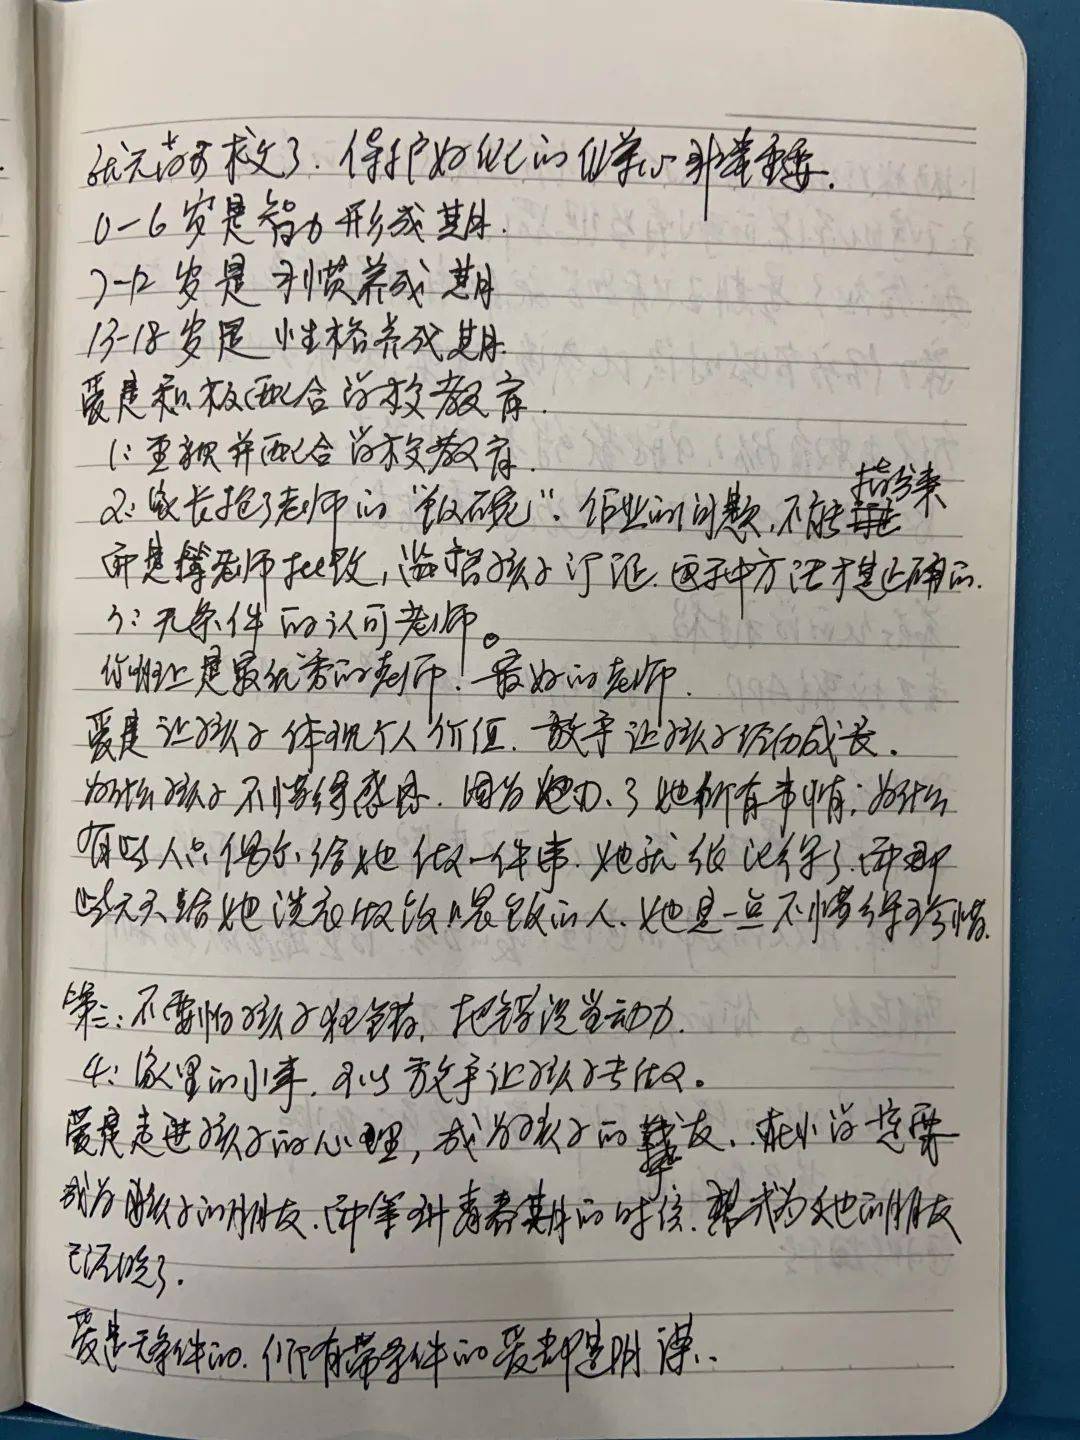 就无药可救了.保护好他的自尊心非常重要.
0-6岁是智力形成期.
7-12岁是习惯养成期
13-18岁是性格养成期.
爱是积极配合学校教育.
1:重视并配合学校教育.
2:家长抢了老师的“饭碗”.作业的问题,不能指出来
而是让老师批改,监督孩子订正.这种方法才是正确的.
3:无条件的认可老师。
你班上是最优秀的老师!最好的老师.
爱是让孩子体现个人价值.放手让孩子经历成长.
为什么孩子不懂得感恩.因为她办了她所有事情;为什么
有些人只偶尔给她做一件事.她就能记得了.而那
些天天给她洗衣做饭喂饭的人.她是一点不懂得珍惜.
第三:不要怕孩子犯错.把错误当动力.
4:家里的小事.可以放手让孩子去做。
爱是走进孩子的心理,成为孩子的朋友.在小学是要
成为孩子的朋友.而等到青春期的时候.想成为她的朋友
已经晚了.
爱是无条件的.所有带条件的爱都是阴谋..